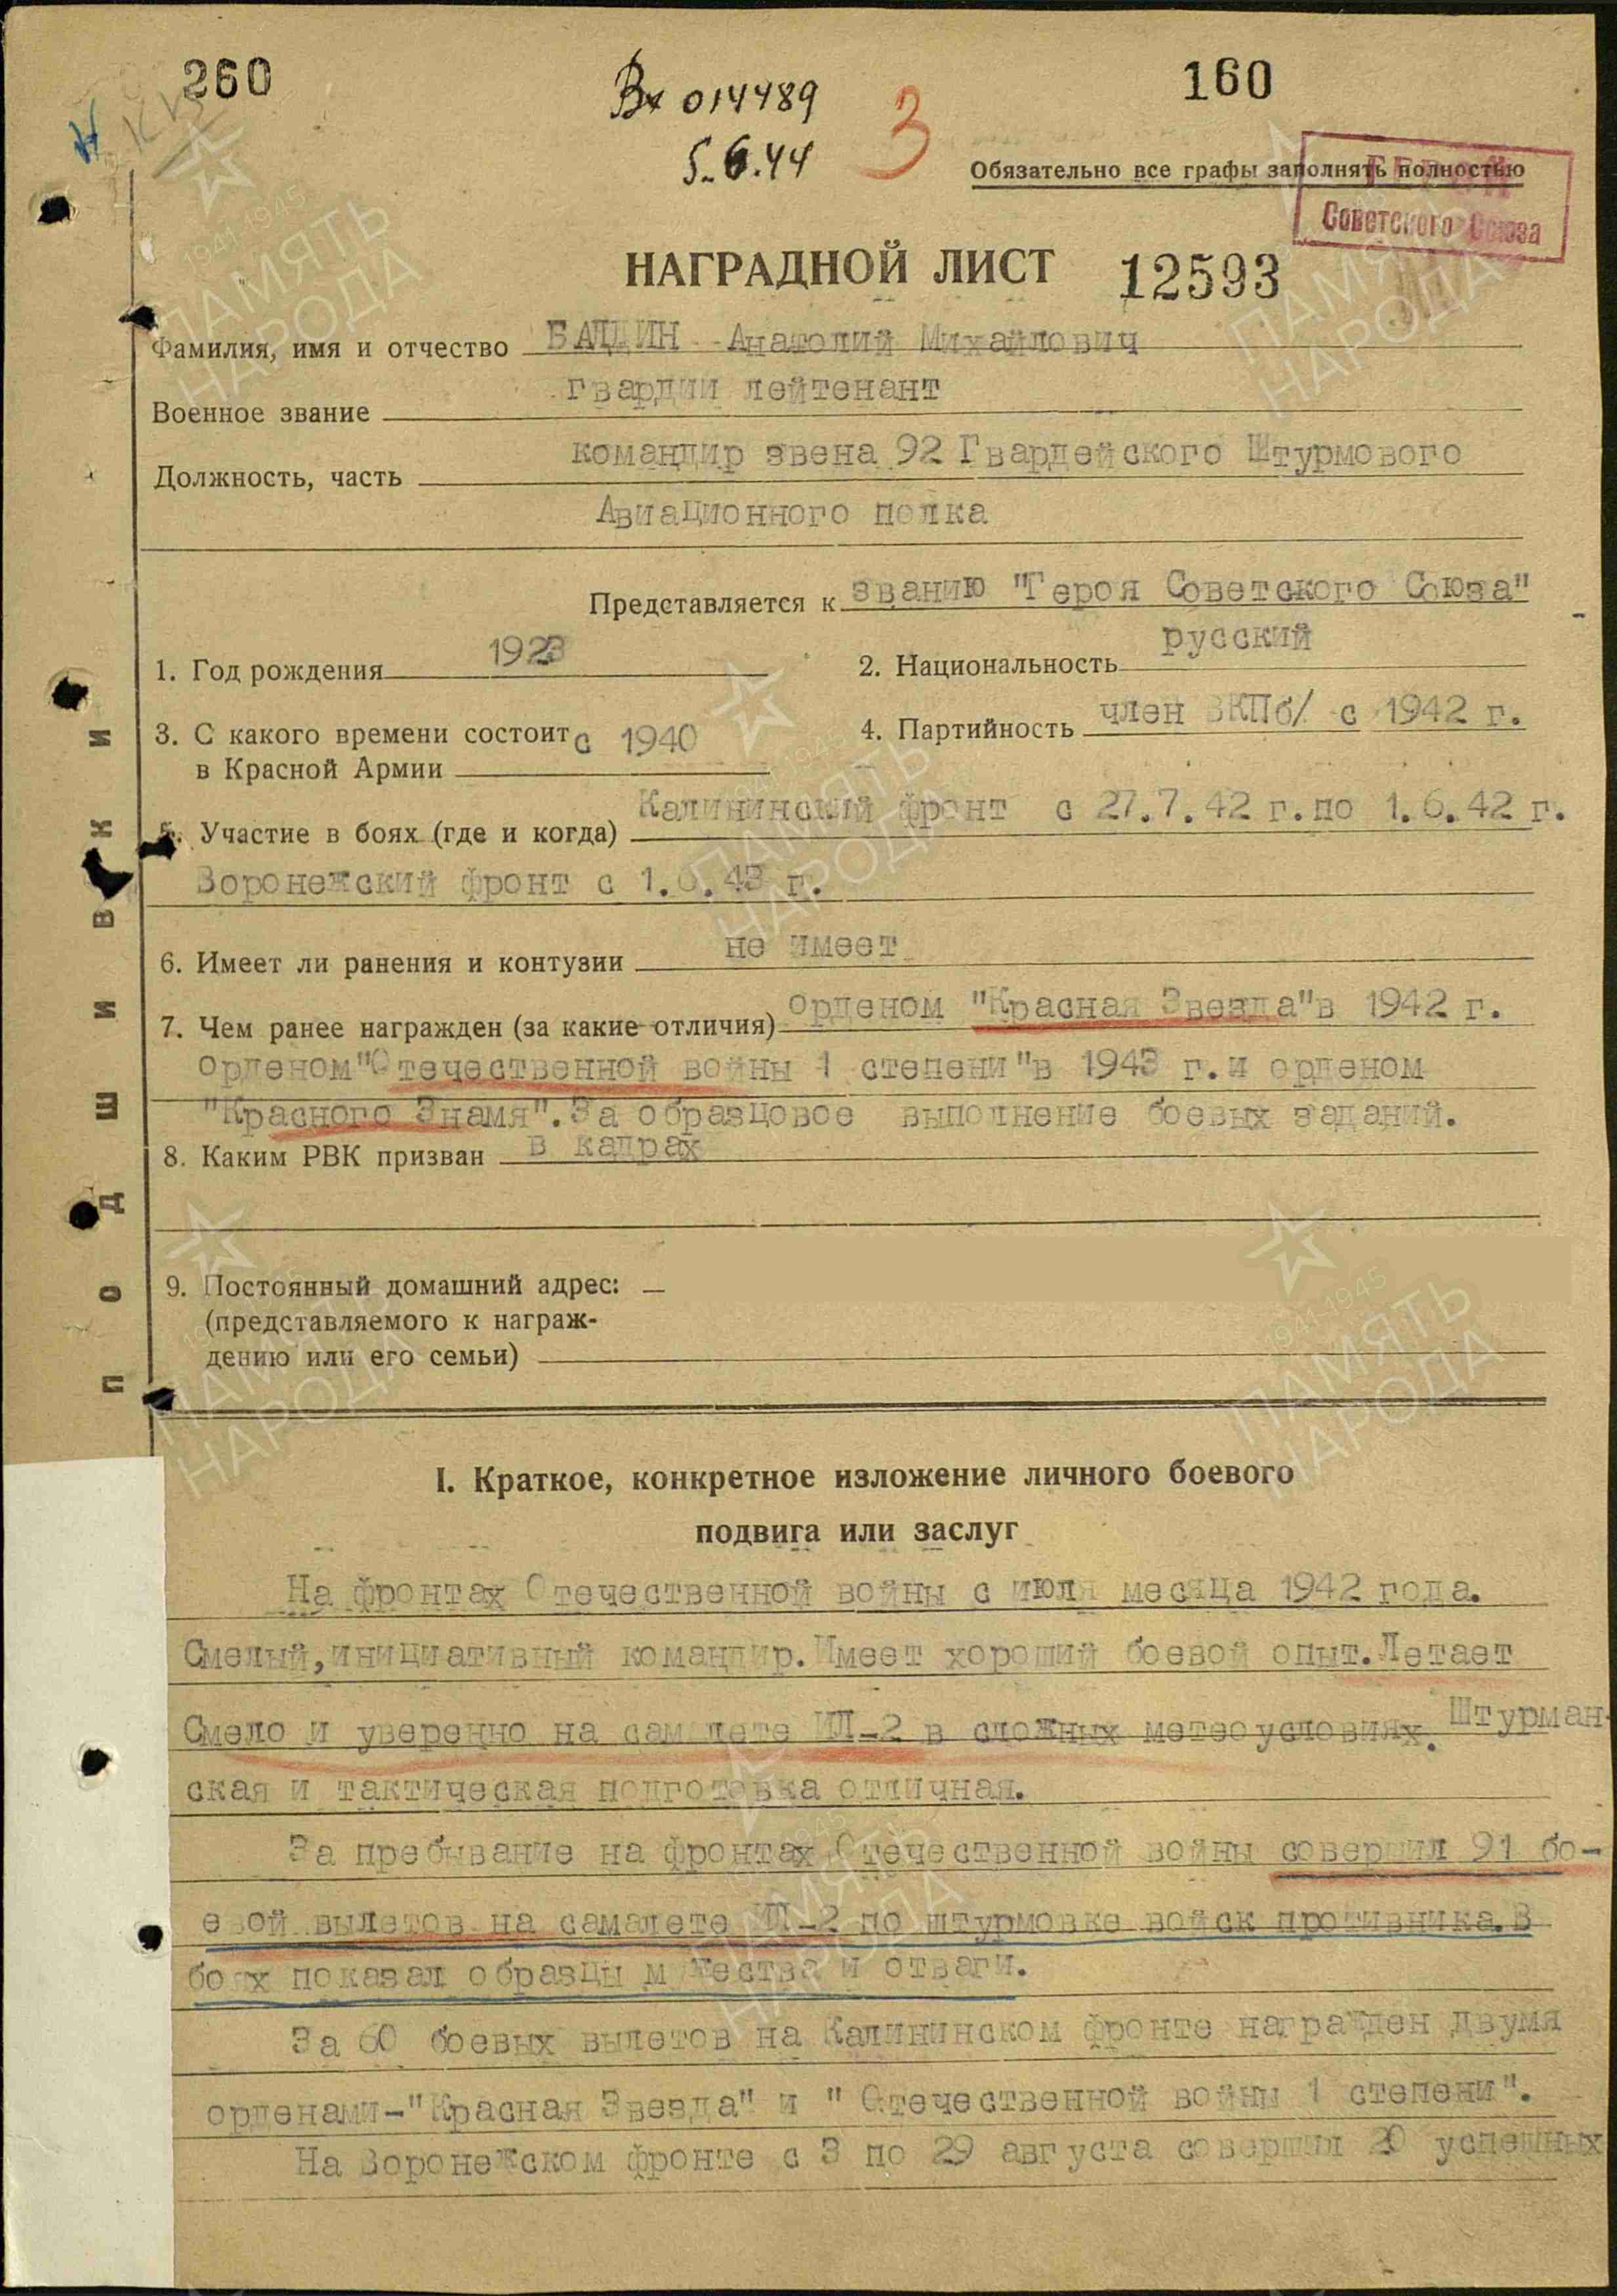 260
Вх 014489
160
5.6.44
3
Обязательно все графы заполнять полностью
Герой
Советского Союза
НАГРАДНОЙ ЛИСТ 12593
Фамилия, имя и отчество БАЛДИН Анатолий Михайлович
гвардии лейтенант
Военное звание
командир звена 92 Гвардейского Штурмового
Должность, часть
Авиационного полка
Представляется к званию "Героя Советского Союза"
1. Год рождения 1923
2. Национальность русский
3. С какого времени состоит с 1940
в Красной Армии
4. Партийность член ВКПб/ с 1942 г.
5. Участие в боях (где и когда) Калининский фронт с 27.7.42 г. по 1.6.42 г.
Воронежский фронт с 1.6.43 г.
6. Имеет ли ранения и контузии не имеет
7. Чем ранее награжден (за какие отличия) орденом "Красная Звезда" в 1942 г.
орденом "Отечественной войны 1 степени" в 1943 г. и орденом
"Красного Знамя". За образцовое выполнение боевых заданий.
8. Каким РВК призван в кадрах
9. Постоянный домашний адрес: —
(представляемого к награж-
дению или его семьи)
ПОДШИВКИ
I. Краткое, конкретное изложение личного боевого
подвига или заслуг
На фронтах Отечественной войны с июля месяца 1942 года.
Смелый, инициативный командир. Имеет хороший боевой опыт. Летает
Смело и уверенно на самалете ИЛ-2 в сложных метеоусловиях. Штурман-
ская и тактическая подготовка отличная.
За пребывание на фронтах Отечественной войны совершил 91 бо-
евой вылетов на самалете ИЛ-2 по штурмовке войск противника. В
боях показал образцы мужества и отваги.
За 60 боевых вылетов на Калининском фронте награжден двумя
орденами-"Красная Звезда" и " Отечественной войны 1 степени".
На Воронежском фронте с 3 по 29 августа совершил 20 успешных
1941-1945
ПАМЯТЬ
НАРОДА